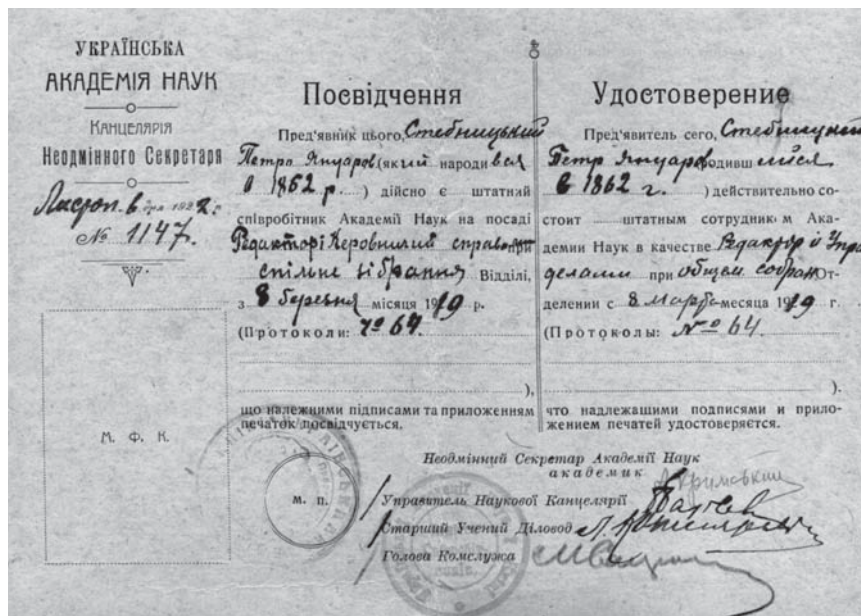 УКРАЇНСЬКА
АКАДЕМІЯ НАУК
КАНЦЕЛЯРІЯ
Неодмінного Секретаря
№ 1147.
М. Ф. К.
Посвідчення
Пред'явник цього, Стебницький
Петро Януаров (який народився
в 1862 р. ) дійсно є штатний
співробітник Академії Наук на посаді
Редактор і справ при
спільне зібрання Відділі,
з 8 березня місяця 1919 р.
(Протоколи: № 64.
),
що належними підписами та приложенням
печаток посвідчується.
Удостоверение
Пред'явитель сего, Стебницкий
Петр Януаров одившийся
в 1862 г. ) действительно со-
стоит штатным сотруднико м Ака-
демии Наук в качестве Редактор и Упр
делами при общем собран От-
делении с 8 марта месяца 1919 г.
(Протоколы: № 64.
).
что надлежашими подписями и прило-
жением печатей удостоверяется.
м. п.
Неодмінний Секретар Академії Наук
академик А Кримський
Управитель Наукової Канцелярії
Старший Учений Діловод
Голова Комслужа